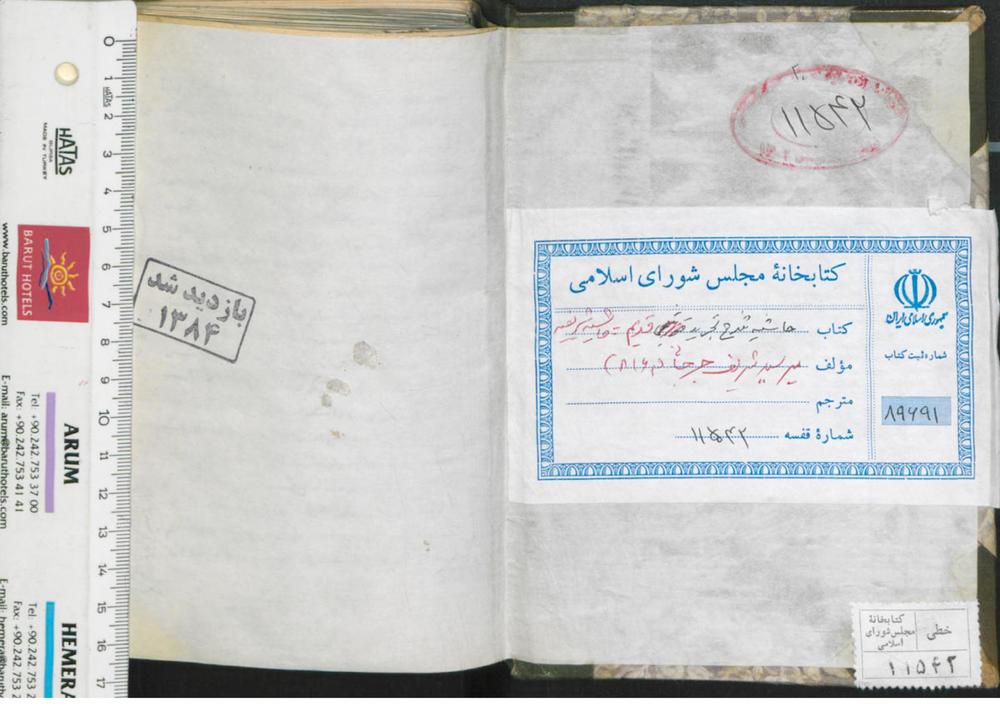 ۱۱۵۴۲
کتابخانهٔ مجلس شورای اسلامی
کتاب حاشیه شرح تجرید قدیم
مؤلف میر سید شریف جرجانی (م ۸۱۶)
مترجم
شمارهٔ قفسه ۱۱۵۴۲
جمهوری اسلامی ایران
شماره ثبت کتاب
۸۹۶۹۱
خطی
کتابخانهٔ
مجلس شورای
اسلامی
۱۱۵۴۲
بازدید شد
۱۳۸۴
0 1 2 3 4 5 6 7 8 9 10 11 12 13 14 15 16 17
HATAS
HATAS
MADE IN TURKEY
BARUT HOTELS
www.baruthotels.com
ARUM
Tel: +90.242.753 37 00
Fax: +90.242.753 41 41
E-mail: arum@baruthotels.com
HEMERA
Tel: +90.242.753
Fax: +90.242.753